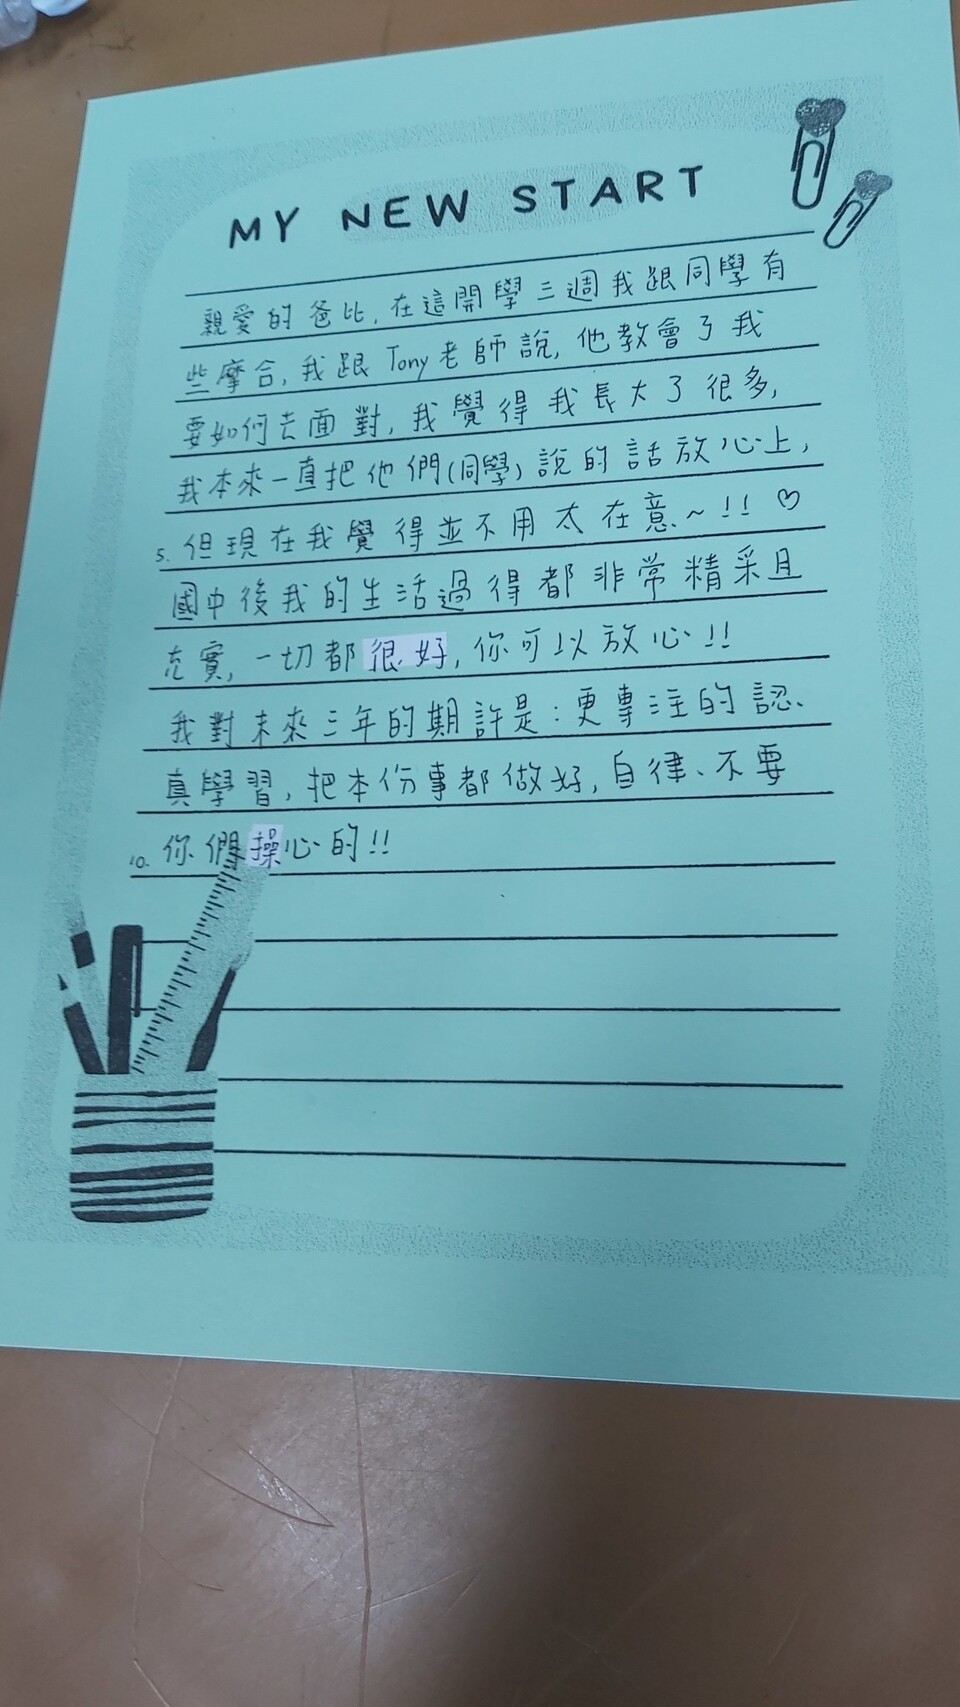 MY NEW START
親愛的爸比,在這開學三週我跟同學有
些摩合,我跟Tony老師說,他教會了我
要如何去面對,我覺得我長大了很多,
我本來一直把他們(同學)說的話放心上,
5. 但現在我覺得並不用太在意~!! ♡
國中後我的生活過得都非常精采且
充實,一切都很好,你可以放心!!
我對未來三年的期許是:更專注的認
真學習,把本份事都做好,自律、不要
10. 你們操心的!!